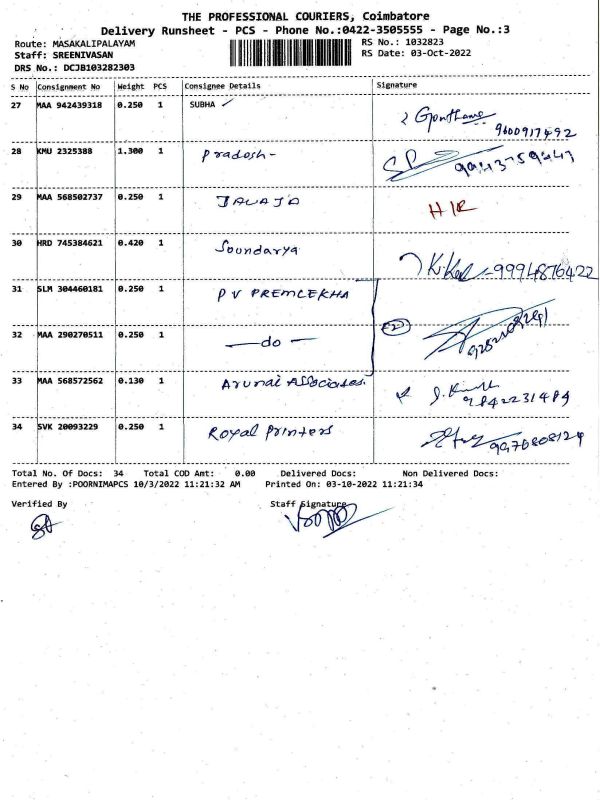 THE PROFESSIONAL COURIERS, Coimbatore
Delivery Runsheet - PCS - Phone No.:0422-3505555 - Page No.:3
Route: MASAKALIPALAYAM RS No.: 1032823
Staff: SREENIVASAN RS Date: 03-Oct-2022
DRS No.: DCJB103282303
S No Consignment No Weight PCS Consignee Details Signature
27 MAA 942439318 0.250 1 SUBHA
9600917492
28 KMU 2325388 1.300 1 Pradosh-
29 MAA 568502737 0.250 1 H/R
30 HRD 745384621 0.420 1 Soundarya
-9994876422
31 SLM 304460181 0.250 1 PV PREMLEKHA
32 MAA 290270511 0.250 1 —do—
33 MAA 568572562 0.130 1 Arunai Associates.
9842231484
34 SVK 20093229 0.250 1 Royal Printers
Total No. Of Docs: 34 Total COD Amt: 0.00 Delivered Docs: Non Delivered Docs:
Entered By :POORNIMAPCS 10/3/2022 11:21:32 AM Printed On: 03-10-2022 11:21:34
Verified By Staff Signature